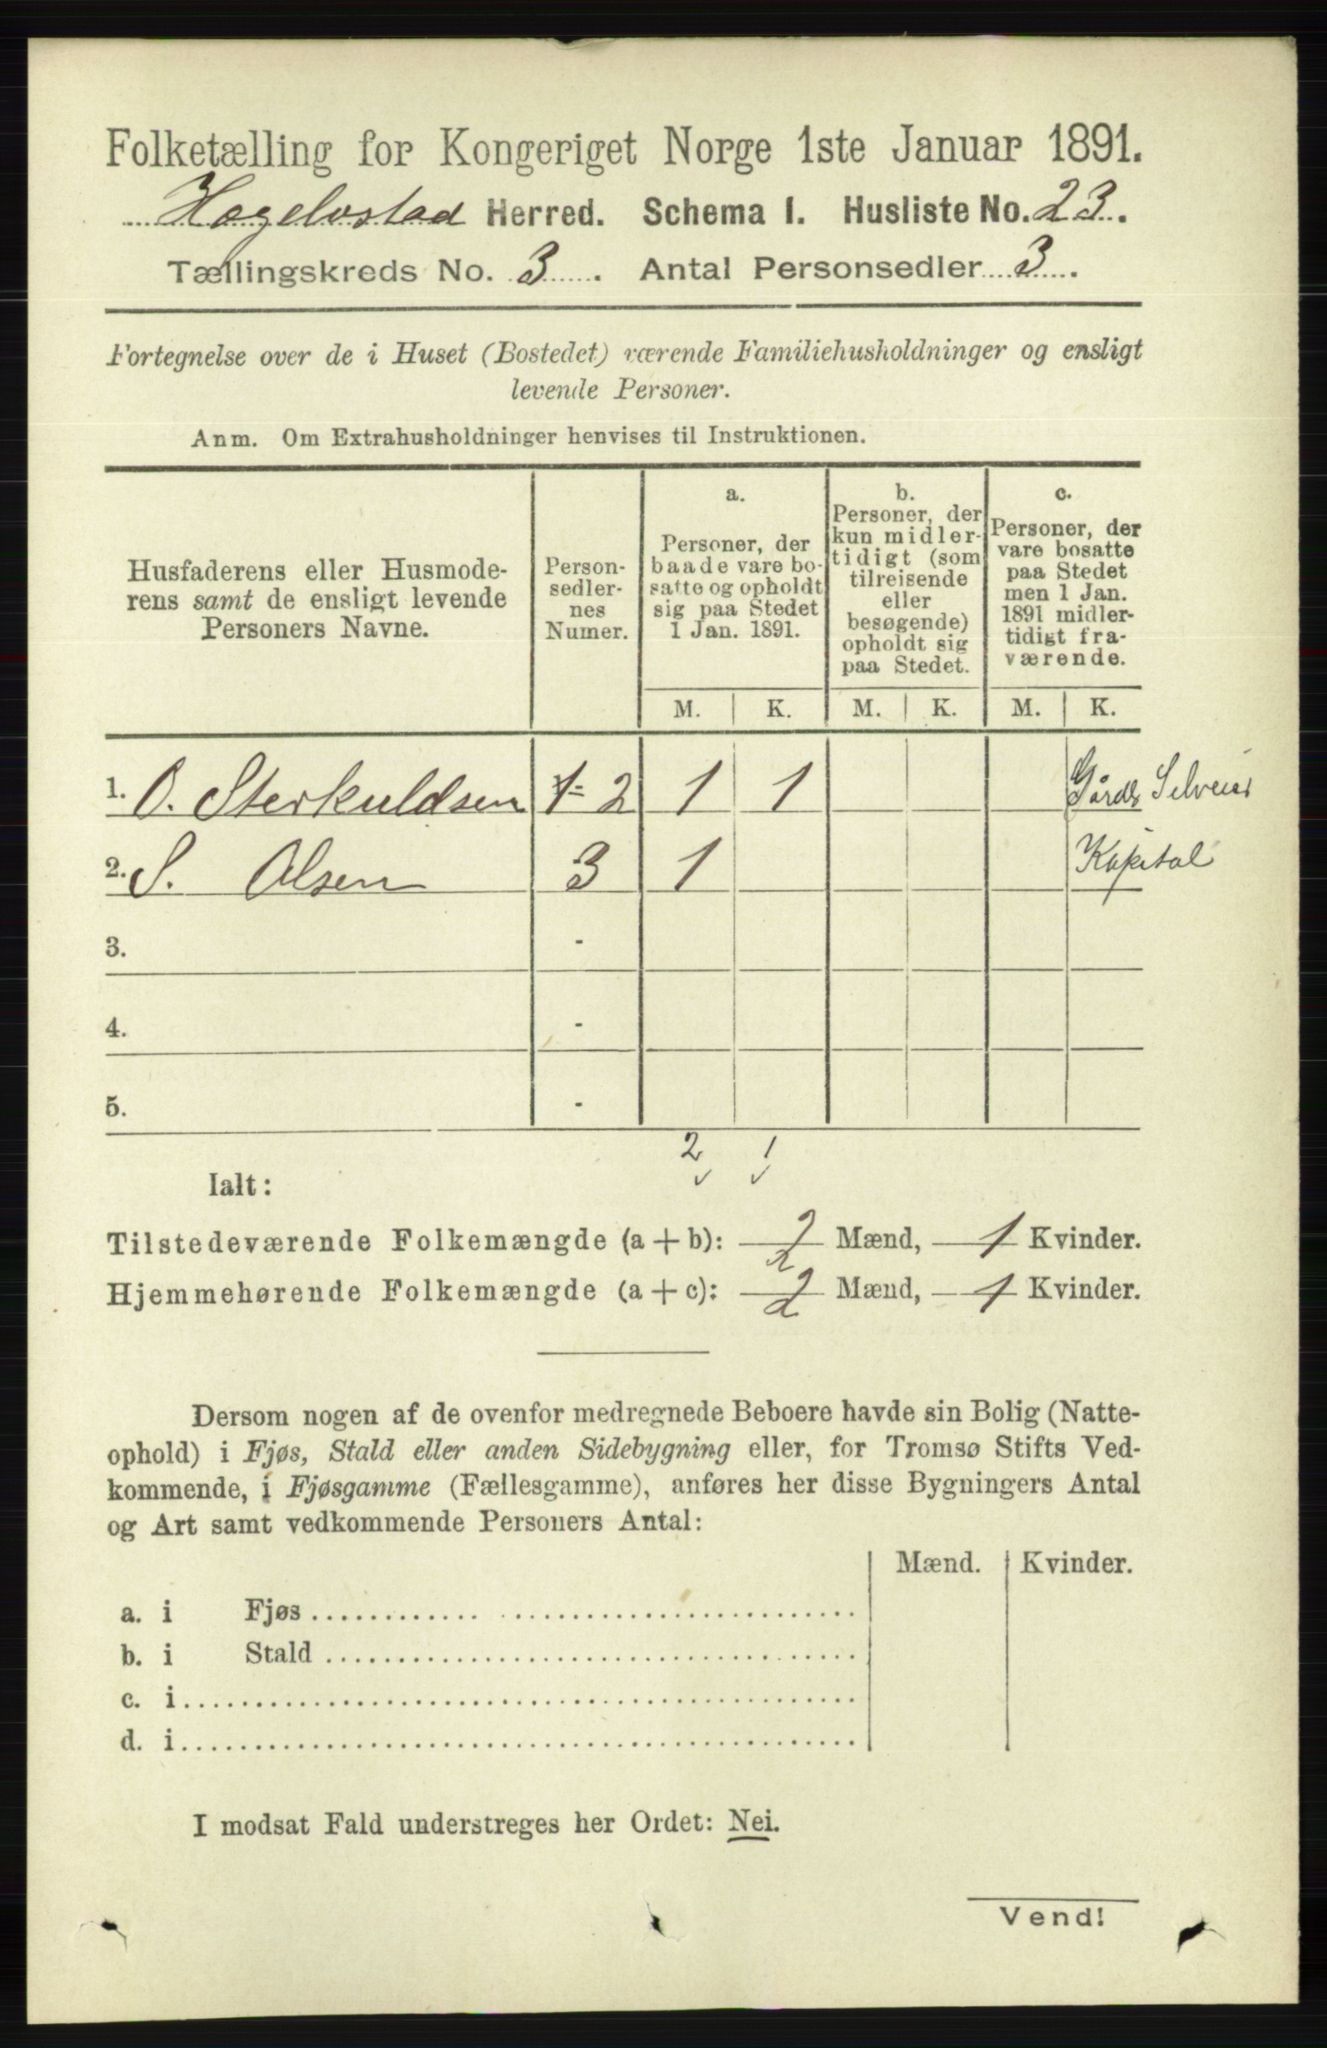 Folketælling for Kongeriget Norge 1ste Januar 1891.
Hægebostad Herred. Schema I. Husliste No. 23.
Tællingskreds No. 3. Antal Personsedler 3.
Fortegnelse over de i Huset (Bostedet) værende Familiehusholdninger og ensligt
levende Personer.
Anm. Om Extrahusholdninger henvises til Instruktionen.
Husfaderens eller Husmode-
rens samt de ensligt levende
Personers Navne.
Person-
sedler-
nes
Numer.
a.
Personer, der
baade vare bo-
satte og opholdt
sig paa Stedet
1 Jan. 1891.
b.
Personer, der
kun midler-
tidigt (som
tilreisende
eller
besøgende)
opholdt sig
paa Stedet.
c.
Personer, der
vare bosatte
paa Stedet
men 1 Jan.
1891 midler-
tidigt fra-
værende.
M. K. M. K. M. K.
1. O. Sterkuldsen 1-2 1 1 Gårdb Selveier
2. S. Olsen 3 1 Kapital
3. -
4. -
5. -
2 1
Ialt:
Tilstedeværende Folkemængde (a + b): 2 Mænd, 1 Kvinder.
Hjemmehørende Folkemængde (a + c): 2 Mænd, 1 Kvinder.
Dersom nogen af de ovenfor medregnede Beboere havde sin Bolig (Natte-
ophold) i Fjøs, Stald eller anden Sidebygning eller, for Tromsø Stifts Ved-
kommende, i Fjøsgamme (Fællesgamme), anføres her disse Bygningers Antal
og Art samt vedkommende Personers Antal:
Mænd. Kvinder.
a. i Fjøs
b. i Stald
c. i
d. i
I modsat Fald understreges her Ordet: Nei.
Vend!